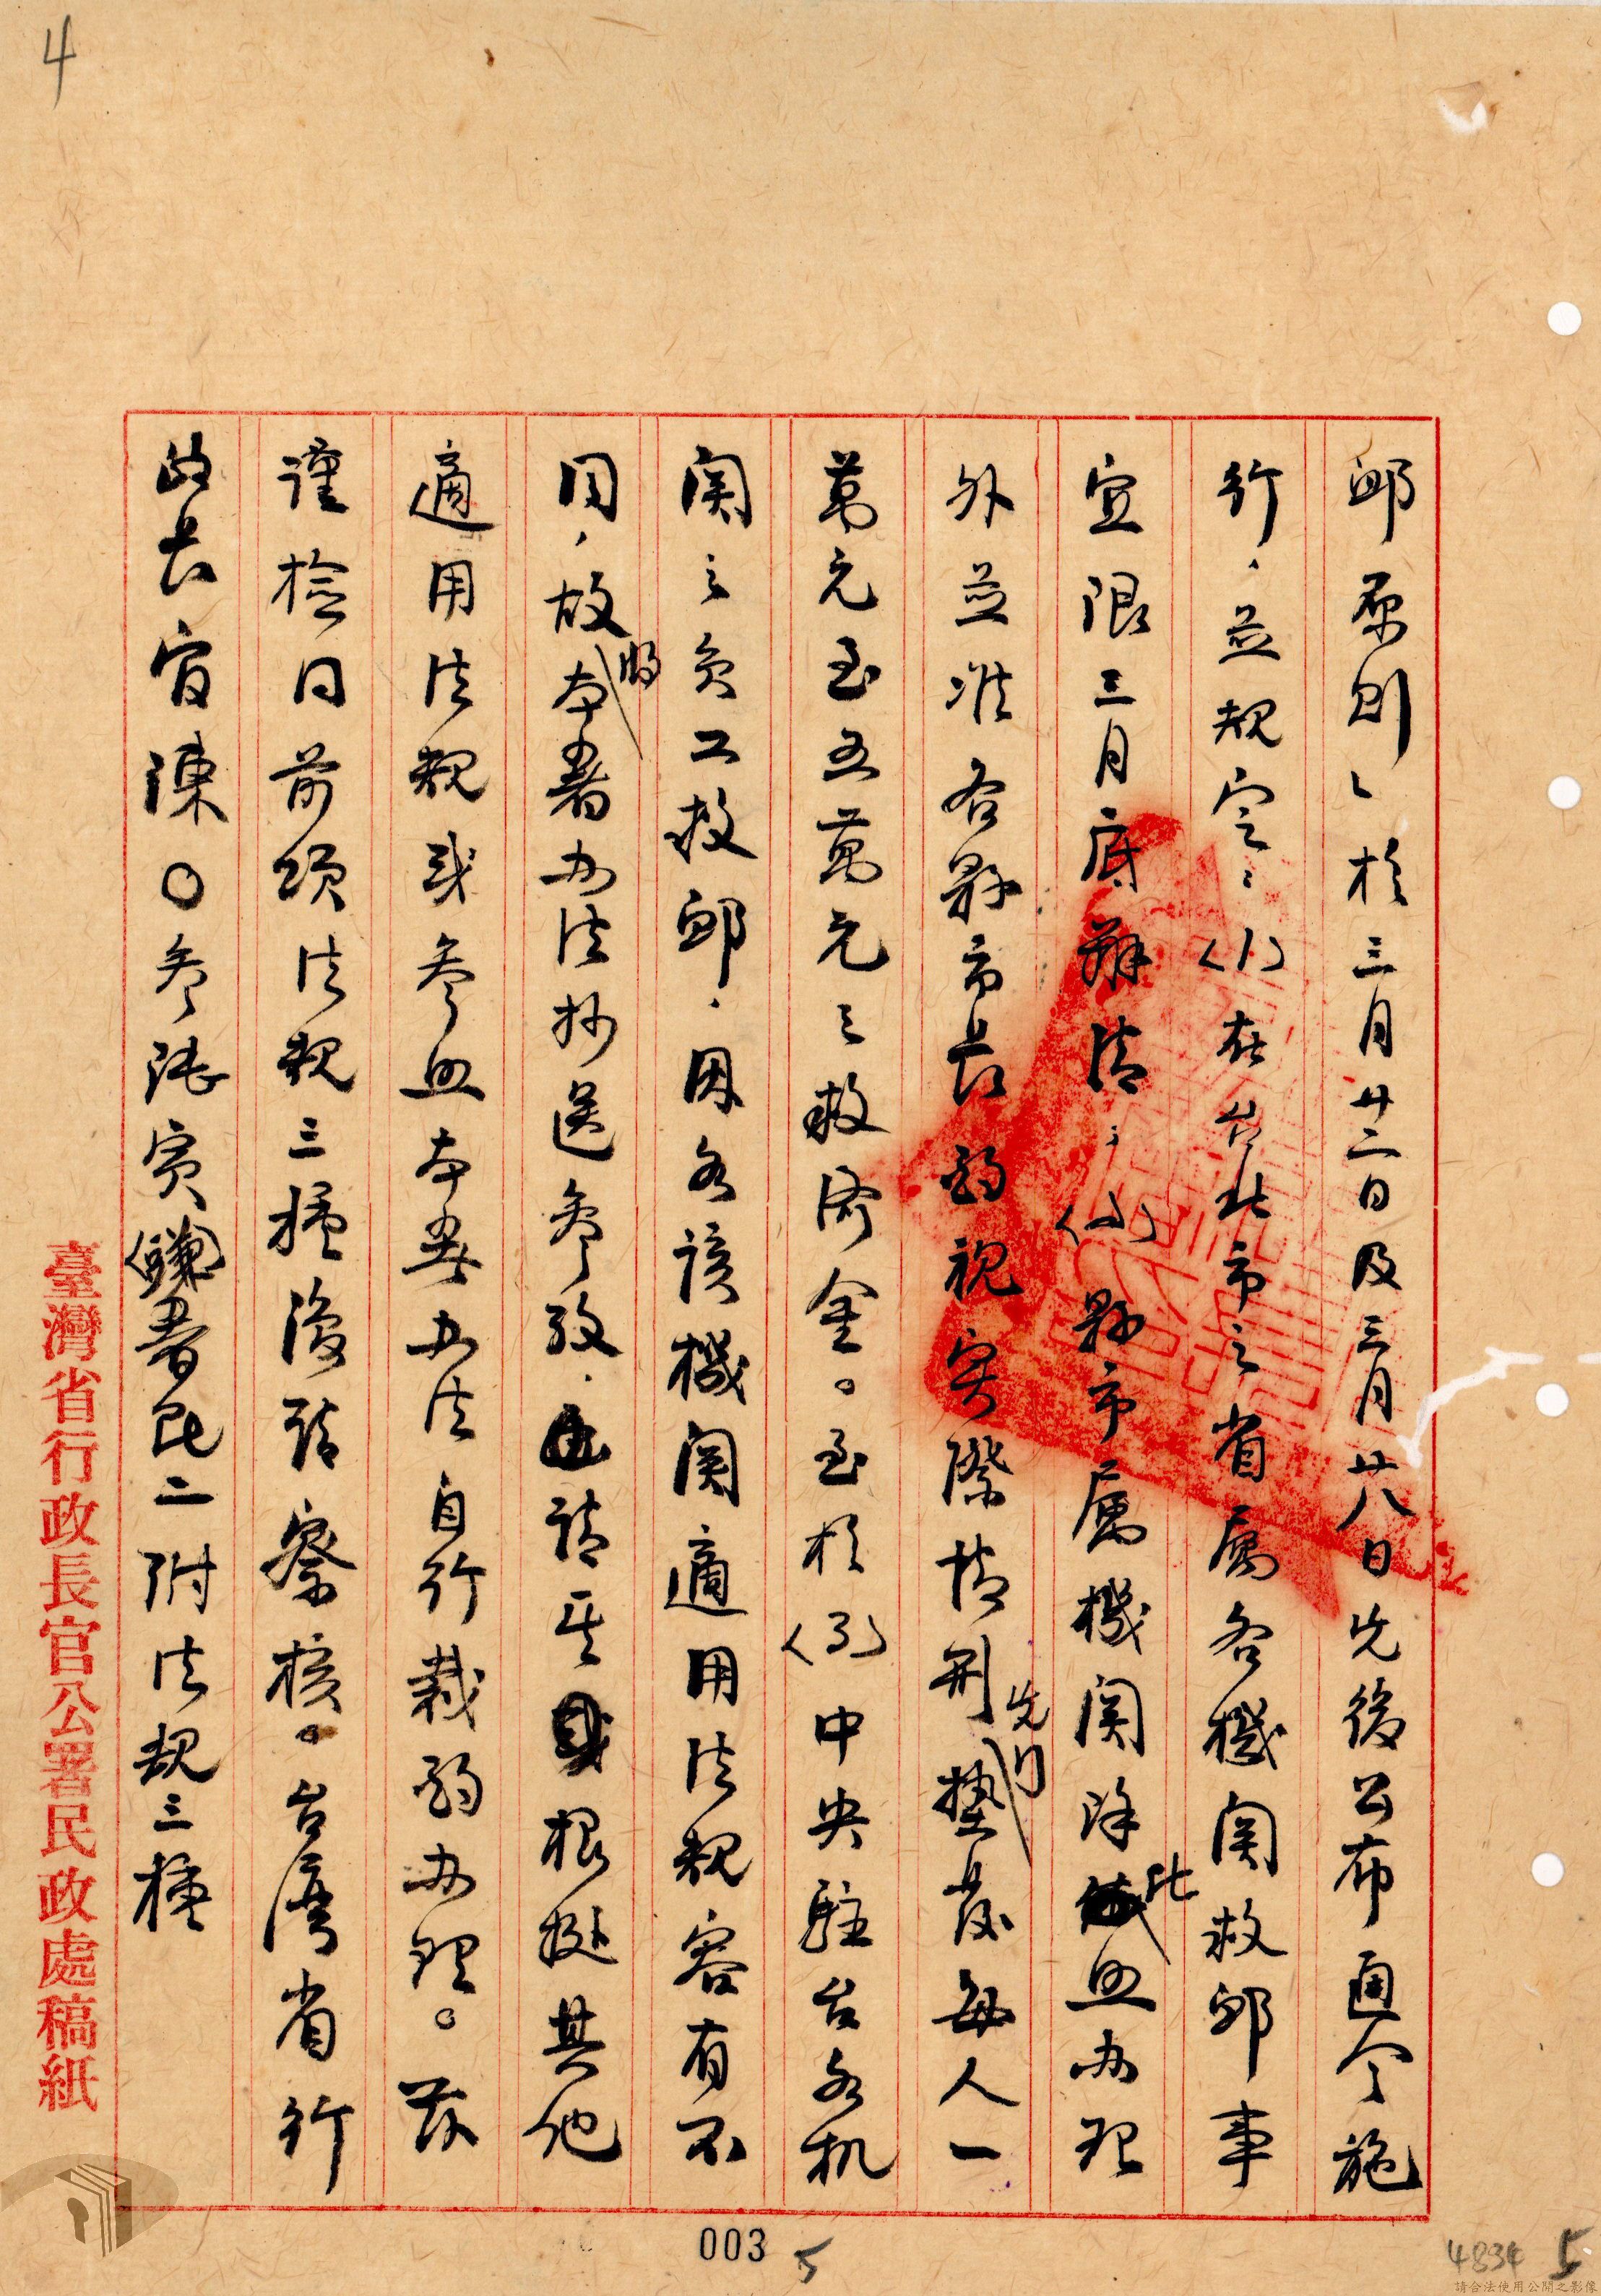 4
卹原則」於三月廿二日及三月廿八日先後公布通令施
行,並規定:(1)在台北市之省屬各機関救卹事
宜限三月底辦清;(2)縣市屬機関除此照办理
外並准各縣市長酌視实際情形先行墊发每人一
萬元至五萬元之救济金。至於(3)中央駐台各机
関之員工救卹,因各該機関適用法規容有不
同,故將本署办法抄送參攷,請其根挺其他
適用法規或參照本署办法自行裁酌办理。茲
謹检同前項法規三種復請察核。台灣省行
政長官陳○叁陸寅 署民二附法規三種
臺灣省行政長官公署民政處稿紙
003
5
4834
5
請合法使用公開之影像